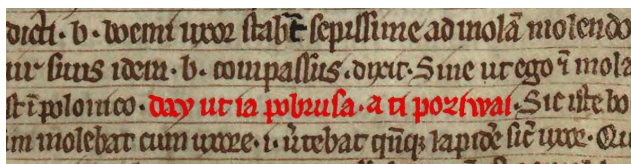 dicti · b · boemi uxor stabat sepissime ad molā molendo
ur̄ suus idem · b · compassus · dixit · Sine ut ego ī mola
st ī polonico · day ut ia pobrusa · a ti poziwai · Sic iste bo
im molebat cum uxore · i · vertebat qn̄q; lapidē sic̄ uxor · Qu